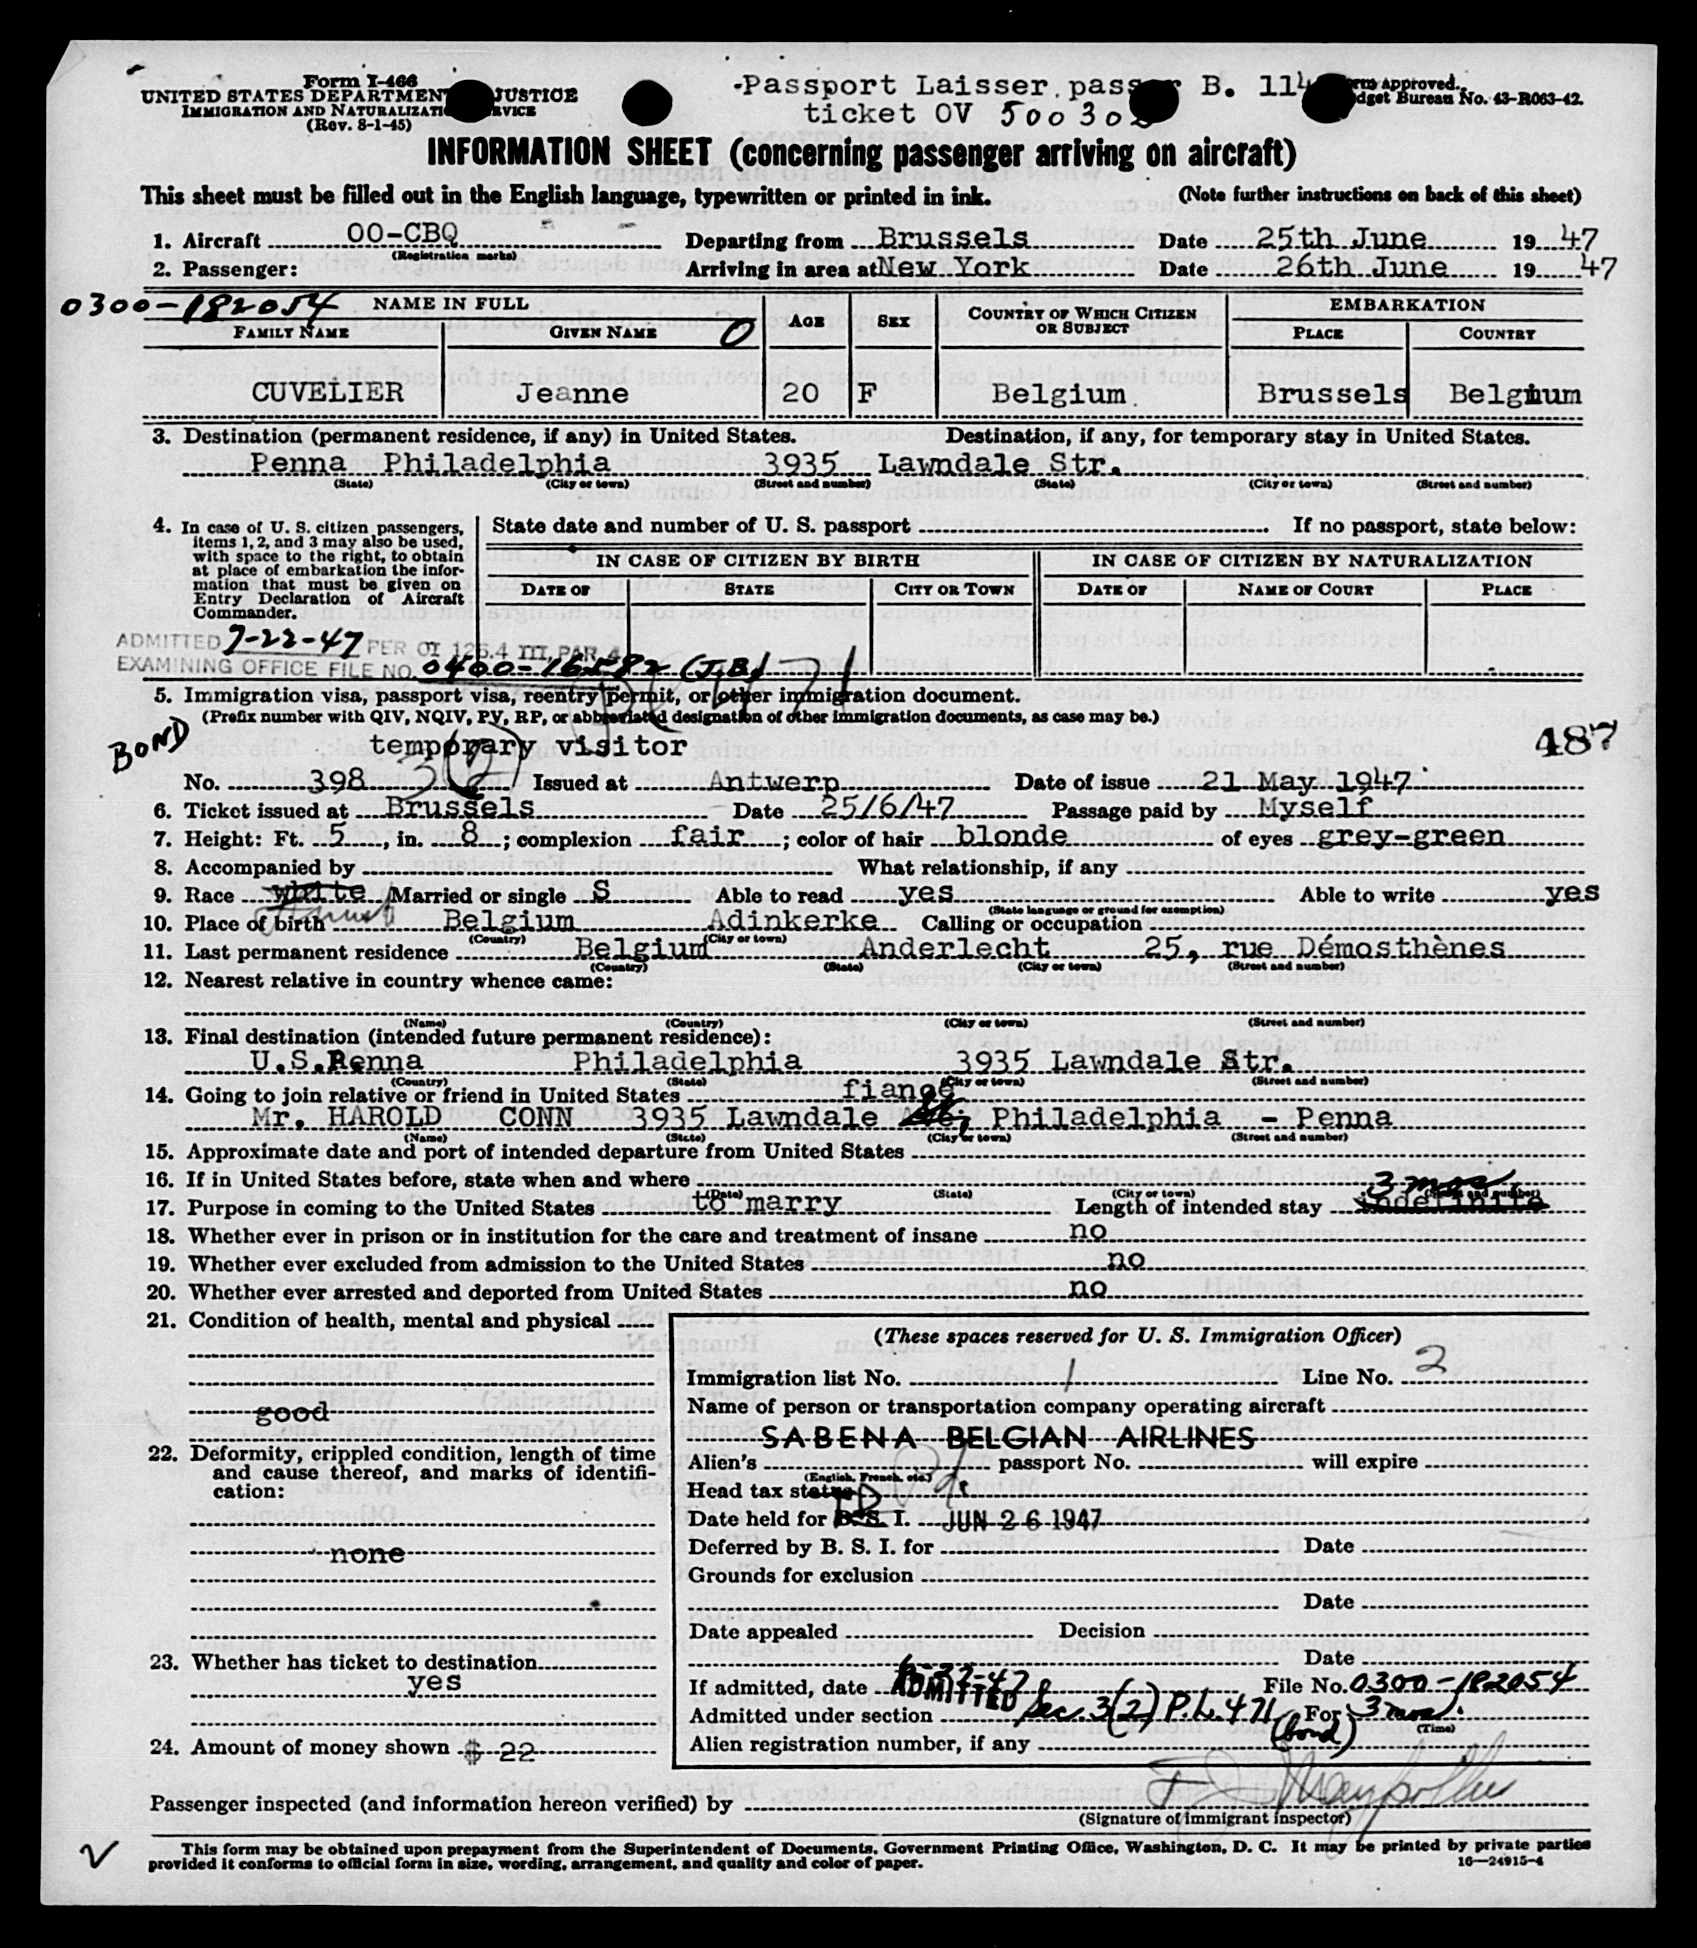 Form I-466
UNITED STATES DEPARTMENT JUSTICE
IMMIGRATION AND NATURALIZATION SERVICE
(Rev. 8-1-45)
Passport Laisser passer B. 114
ticket OV 50030
Form Approved.
Budget Bureau No. 43-R063-42.
INFORMATION SHEET (concerning passenger arriving on aircraft)
This sheet must be filled out in the English language, typewritten or printed in ink. (Note further instructions on back of this sheet)
1. Aircraft OO-CBQ Departing from Brussels Date 25th June 1947
(Registration marks)
2. Passenger: Arriving in area at New York Date 26th June 1947
0300-182054 NAME IN FULL AGE SEX COUNTRY OF WHICH CITIZEN OR SUBJECT EMBARKATION
FAMILY NAME GIVEN NAME 0 PLACE COUNTRY
CUVELIER Jeanne 20 F Belgium. Brussels Belgium
3. Destination (permanent residence, if any) in United States. Destination, if any, for temporary stay in United States.
Penna Philadelphia 3935 Lawndale Str.
(State) (City or town) (Street and number) (State) (City or town) (Street and number)
4. In case of U. S. citizen passengers, items 1, 2, and 3 may also be used, with space to the right, to obtain at place of embarkation the information that must be given on Entry Declaration of Aircraft Commander.
State date and number of U. S. passport If no passport, state below:
IN CASE OF CITIZEN BY BIRTH IN CASE OF CITIZEN BY NATURALIZATION
DATE OF STATE CITY OR TOWN DATE OF NAME OF COURT PLACE
ADMITTED 7-22-47 PER OI 126.4 III, PAR 4
EXAMINING OFFICE FILE NO. 0400-16582 (J.B)
5. Immigration visa, passport visa, reentry permit, or other immigration document.
(Prefix number with QIV, NQIV, PV, RP, or abbreviated designation of other immigration documents, as case may be.)
BOND temporary visitor 487
3(2)
No. 398 Issued at Antwerp Date of issue 21 May 1947
6. Ticket issued at Brussels Date 25/6/47 Passage paid by Myself
7. Height: Ft. 5, in. 8; complexion fair; color of hair blonde of eyes grey-green
8. Accompanied by What relationship, if any
9. Race white Married or single S Able to read yes Able to write yes
(State language or ground for exemption)
10. Place of birth Belgium Adinkerke Calling or occupation
(Country) (City or town)
11. Last permanent residence Belgium Anderlecht 25, rue Démosthènes
(Country) (State) (City or town) (Street and number)
12. Nearest relative in country whence came:
(Name) (Country) (City or town) (Street and number)
13. Final destination (intended future permanent residence):
U.S.Penna Philadelphia 3935 Lawndale Str.
(Country) (State) (City or town) (Street and number)
14. Going to join relative or friend in United States fiance
Mr. HAROLD CONN 3935 Lawndale Philadelphia - Penna
(Name) (State) (City or town) (Street and number)
15. Approximate date and port of intended departure from United States
16. If in United States before, state when and where
(Date) (State) (City or town) (Street and number)
17. Purpose in coming to the United States to marry Length of intended stay indefinite 3 mos
18. Whether ever in prison or in institution for the care and treatment of insane no
19. Whether ever excluded from admission to the United States no
20. Whether ever arrested and deported from United States no
21. Condition of health, mental and physical
good
22. Deformity, crippled condition, length of time and cause thereof, and marks of identification:
none
23. Whether has ticket to destination
yes
24. Amount of money shown $ 22
(These spaces reserved for U. S. Immigration Officer)
Immigration list No. 1 Line No. 2
Name of person or transportation company operating aircraft
SABENA BELGIAN AIRLINES
Alien's passport No. will expire
(English, French, etc.)
Head tax status
Date held for B. S. I. JUN 26 1947
Deferred by B. S. I. for Date
Grounds for exclusion
Date
Date appealed Decision
Date
If admitted, date ADMITTED File No. 0300-182054
Admitted under section Sec. 3(2) P.L. 471 For 3 mos.
(bond) (Time)
Alien registration number, if any
Passenger inspected (and information hereon verified) by
(Signature of immigrant inspector)
This form may be obtained upon prepayment from the Superintendent of Documents, Government Printing Office, Washington, D. C. It may be printed by private parties
provided it conforms to official form in size, wording, arrangement, and quality and color of paper. 16—24915-4